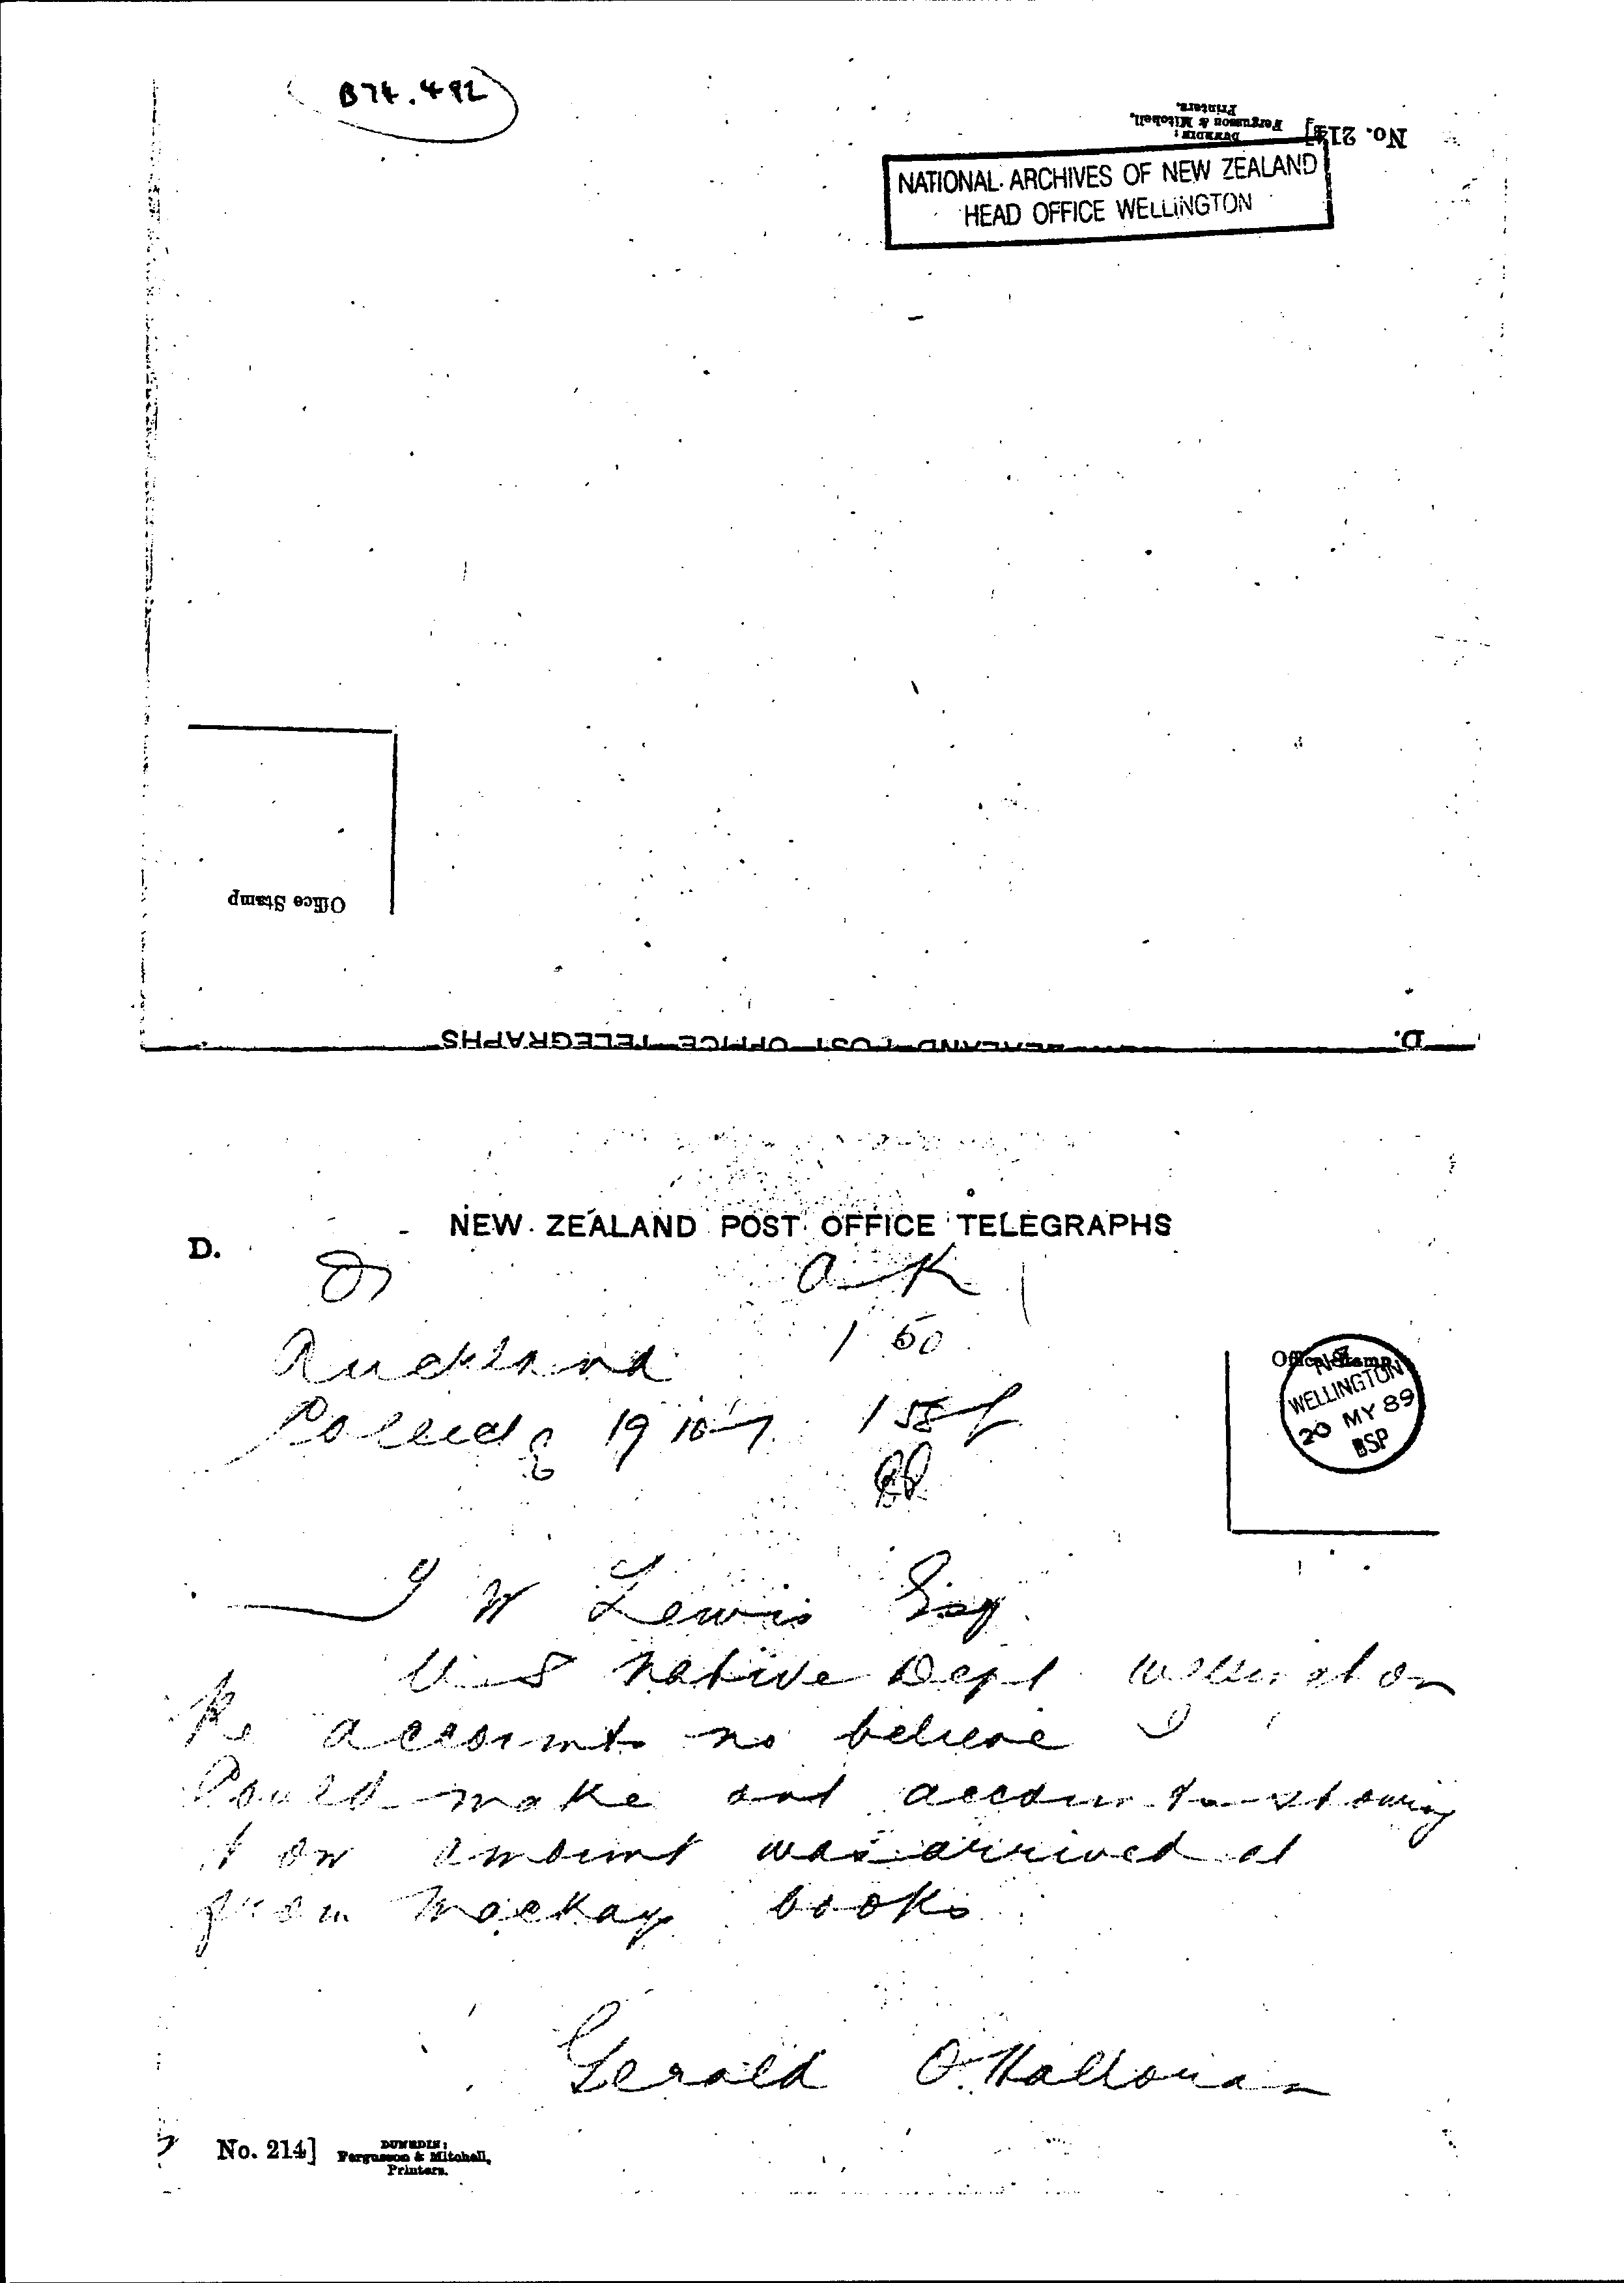 B74.492
No. 214]
DUNEDIN:
Fergusson & Mitchell,
Printers.
NATIONAL ARCHIVES OF NEW ZEALAND
HEAD OFFICE WELLINGTON
Office Stamp
ZEALAND POST OFFICE TELEGRAPHS
D.
NEW ZEALAND POST OFFICE TELEGRAPHS
D.
ak
Auckland 1 50
19 158
Office Stamp
N.Z.
WELLINGTON
20 MY 89
T W Lewis Esq
U S Native Dept Wellington
Re accounts no believe I
Could make out account showing
how amount was arrived at
from Mackay books
Gerald O.Halloran
No. 214]
DUNEDIN:
Fergusson & Mitchell,
Printers.